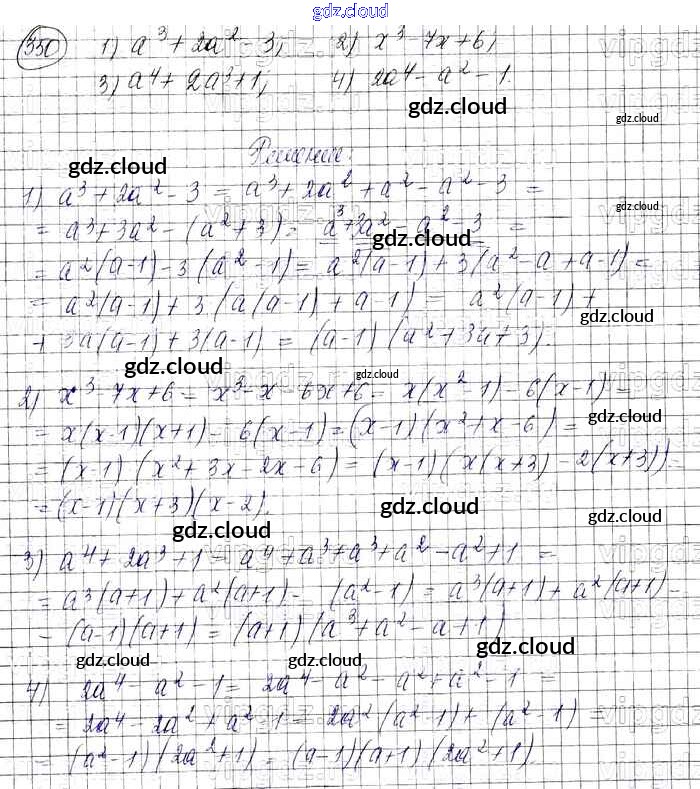 gdz.cloud
350 1) a³ + 2a² - 3; 2) x³ - 7x + 6;
3) a⁴ + 2a³ + 1; 4) 2a⁴ - a² - 1.
gdz.cloud
Решение:
gdz.cloud
1) a³ + 2a² - 3 = a³ + 2a² + a² - a² - 3 =
= a³ + 3a² - (a² + 3) = a³ + 3a² - a² - 3 =
gdz.cloud
= a²(a-1) - 3(a² - 1) = a²(a-1) + 3(a² - a + a - 1) =
= a²(a-1) + 3(a(a-1) + a - 1) = a²(a-1) +
gdz.cloud
+ 3a(a-1) + 3(a-1) = (a-1)(a² + 3a + 3).
gdz.cloud gdz.cloud
2) x³ - 7x + 6 = x³ - x - 6x + 6 = x(x² - 1) - 6(x-1) =
gdz.cloud
= x(x-1)(x+1) - 6(x-1) = (x-1)(x² + x - 6) =
= (x-1)(x² + 3x - 2x - 6) = (x-1)(x(x+3) - 2(x+3))
= (x-1)(x+3)(x-2).
gdz.cloud gdz.cloud gdz.cloud
3) a⁴ + 2a³ + 1 = a⁴ + a³ + a³ + a² - a² + 1 =
= a³(a+1) + a²(a+1) - (a² - 1) = a³(a+1) + a²(a+1) -
- (a-1)(a+1) = (a+1)(a³ + a² - a + 1)
gdz.cloud gdz.cloud gdz.cloud
4) 2a⁴ - a² - 1 = 2a⁴ - a² - a² + a² - 1 =
= 2a⁴ - 2a² + a² - 1 = 2a²(a² - 1) + (a² - 1) =
= (a² - 1)(2a² + 1) = (a-1)(a+1)(2a² + 1).